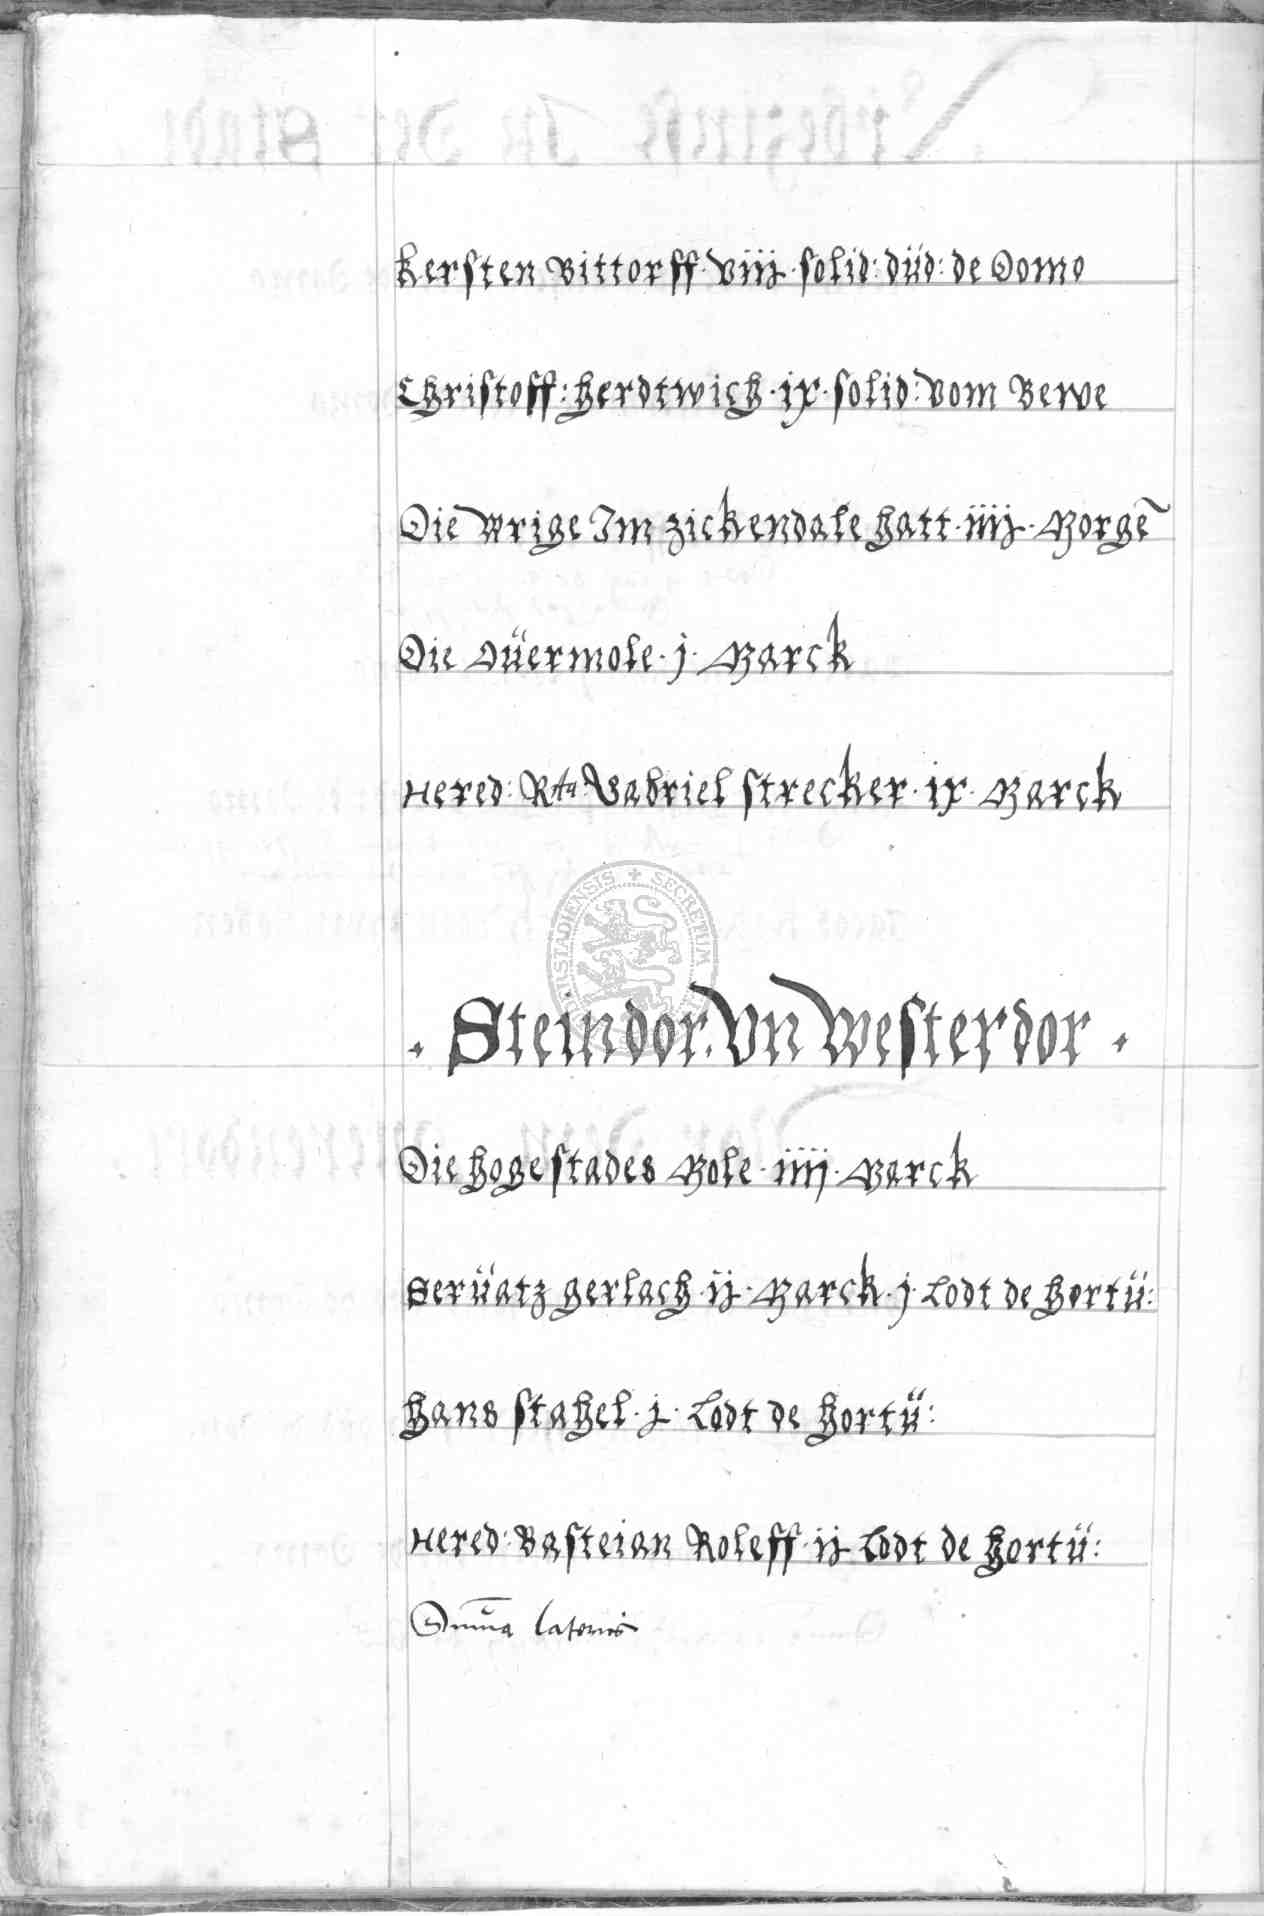 Kersten Bittorff · viij · solid: düd: de Domo
Christoff: Herdtwich · ix · solid: vom Bewe
Die Wrige Im Zickendale hatt · iiij · Morgē
Die Oüermole · j · Marck
Hered: Gabriel Strecker · ix · Marck
SECRETUM
· Steindor · Vn Westerdor ·
Die Hogestades Mole · iiij · Marck
Serüatz Gerlach · ij · Marck · j · Lodt de Hortü:
Hans Stahel · j · Lodt de Hortü:
Hered: Basteian Roleff · ij Lodt de Hortü:
Summa lateris